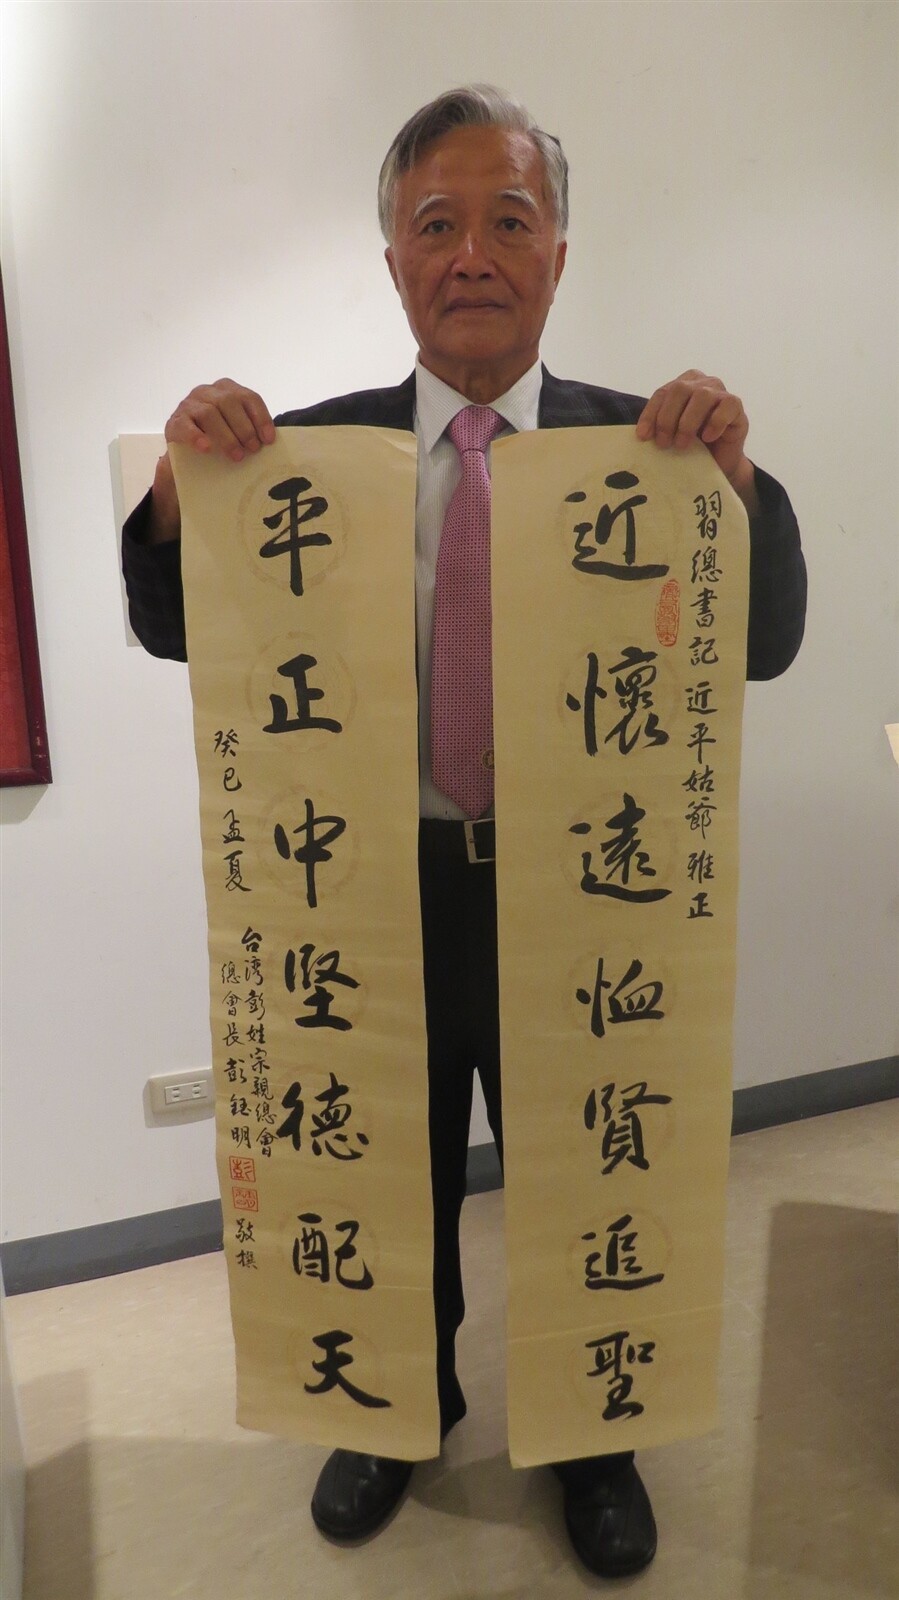 習總書記 近平姑爺 雅正
近懷遠恤賢追聖
平正中堅德配天
癸巳孟夏
台灣彭姓宗親總會
總會長彭鈺明
彭
敬撰